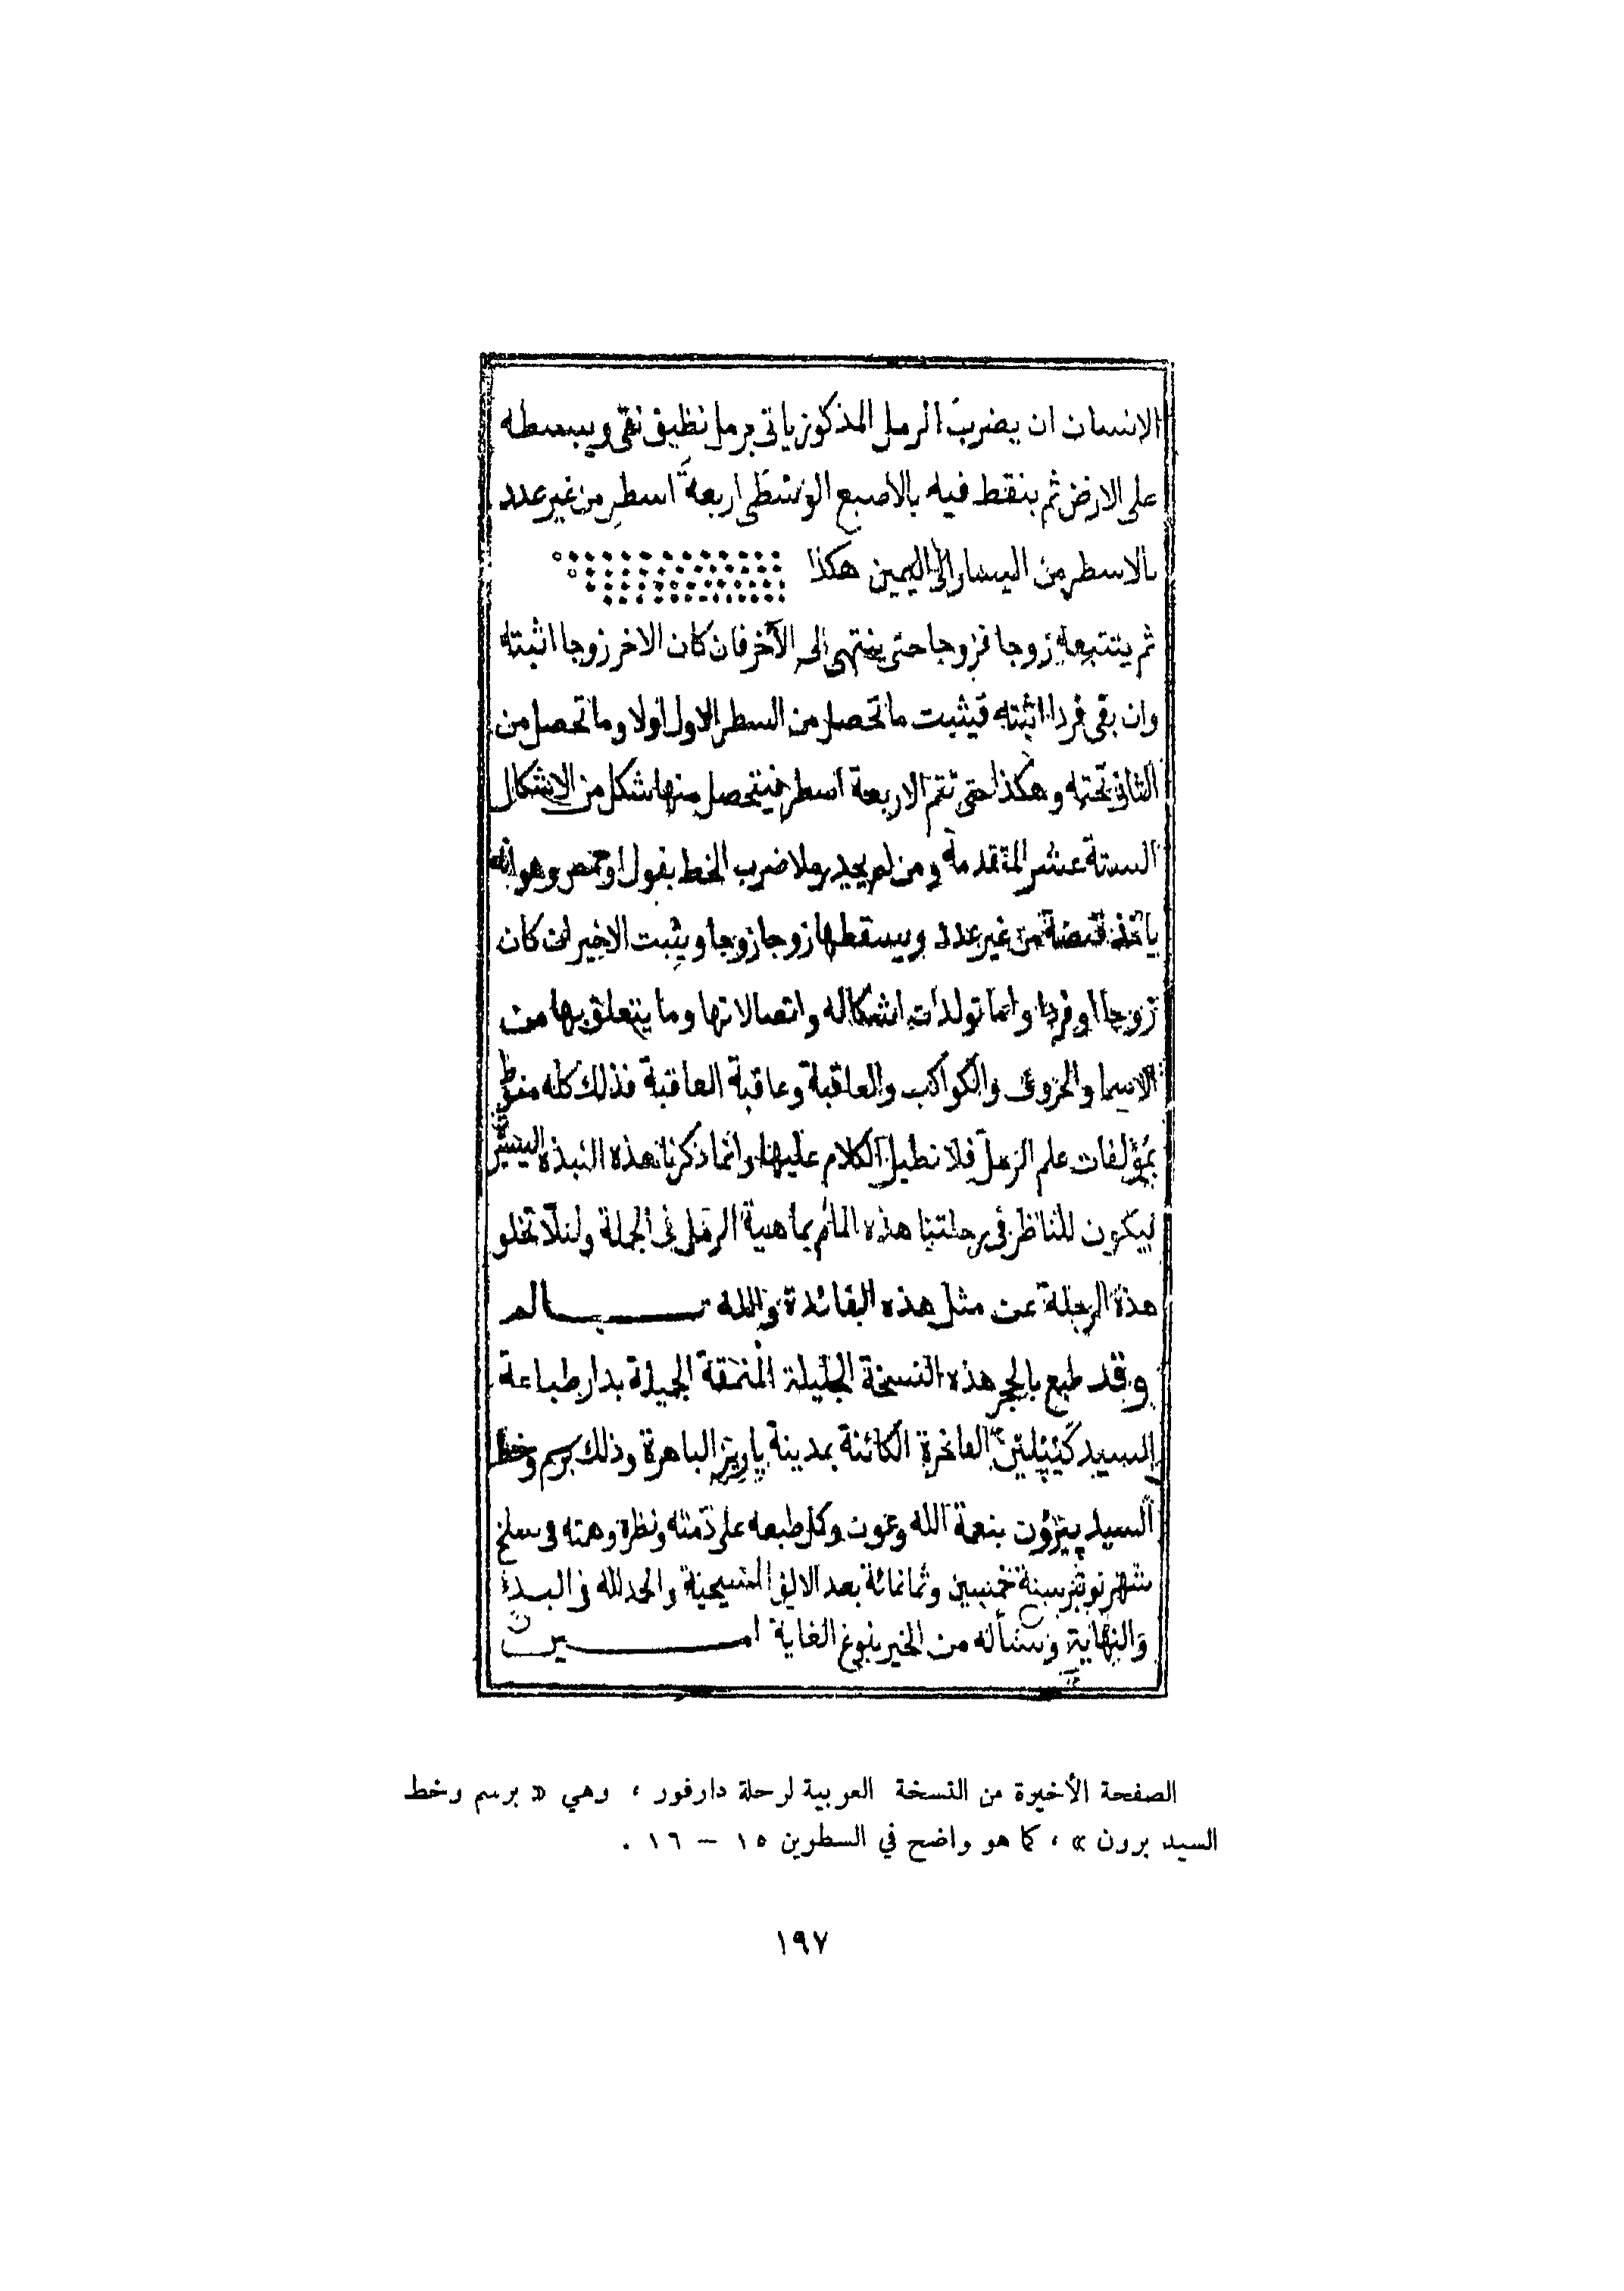 الانسان ان يضرب الرمل المذكور ياتى برمل نظيف نقى ويبسطه
على الارض ثم ينقط فيه بالاصبع الوسطى اربعة اسطر من غير عدد
بالاسطر من اليسار الى اليمين هكذا
ثم يتتبعه زوجا فزوجا حتى ينتهى الى الآخر فان كان الاخر زوجا اثبته
وان بقى فردا اثبته فيثبت ما تحصل من السطر الاول اولا وما تحصل من
الثانى تحته وهكذا حتى تتم الاربعة اسطر فيتحصل منها شكل من الاشكال
الستة عشر المتقدمة ومن لم يجد رملا ضرب الخط بفول او حمص وهو انه
ياخذ قبضة من غير عدد ويسقطها زوجا زوجا ويثبت الاخير ان كان
زوجا او فردا واما تولدات اشكاله واتصالاتها وما يتعلق بها من
الاسما والحروف والكواكب والعاقبة وعاقبة العاقبة فذلك كله منوط
بمؤلفات علم الرمل فلا نطيل الكلام عليها وانما ذكرنا هذه النبذه اليسيرة
ليكون للناظر فى رحلتنا هذه المام بماهية الرمل فى الجملة ولئلا تخلو
هذه الرحلة عن مثل هذه الفائدة والله
وقد طبع بالحجر هذه النسخة الجليلة المنمقة الجميلة بدار طباعة
السيد كَيْپلين الفاخرة الكائنة بمدينة پاريز الباهرة وذلك برسم وخط
السيد پيرون بنعمة الله وعون وكل طبعه على ذمته ونظره وهمته فى سلخ
شهر نونبر سنة خمسين وثمانمائة بعد الالف المسيحية والحمد لله فى البدء
والنهاية ونسأله من الخير بلوغ الغاية امـــــيرن
الصفحة الأخيرة من النسخة العربية لرحلة دارفور ، وهي « برسم وخط
السيد برون » ، كما هو واضح في السطرين ١٥ – ١٦ .
١٩٧